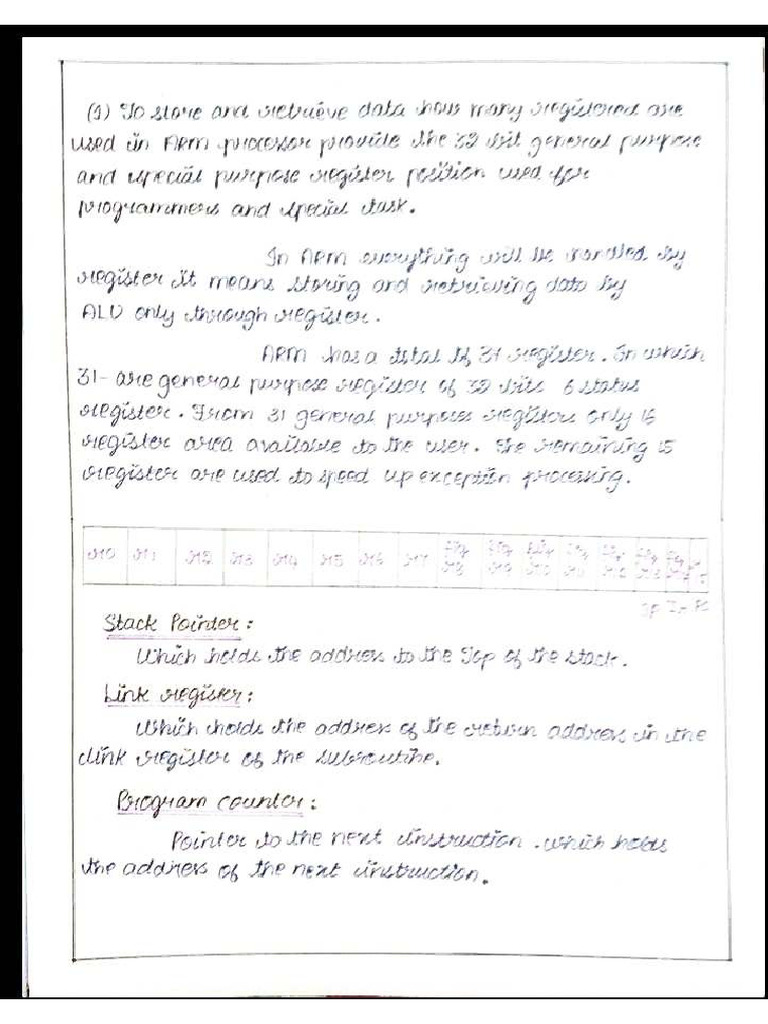 (1) To store and retrieve data how many registered are
used in ARM processor provide the 32 bit general purpose
and special purpose register position used for
programmers and special task.
In ARM everything will be handled by
register it means storing and retrieving data by
ALU only through register.
ARM has a total of 37 register. In which
31- are general purpose register of 32 bits 6 status
register. From 31 general purpose register only 16
register area available to the user. The remaining 15
register are used to speed up exception processing.
r10 r11 r12 r13 r14 r15 r16 r17
Stack Pointer:
Which holds the address to the Top of the stack.
Link register:
Which holds the address of the return address in the
link register of the subroutine.
Program counter:
Pointer to the next instruction. which holds
the address of the next instruction.